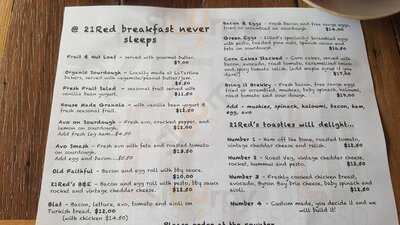 @ 21Red breakfast never
sleeps
Fruit & Nut Loaf - served with gourmet butter.
$7.00
Organic Sourdough - Locally made at LaTartine
bakers, served with vegemite/peanut butter/jam.
$7.50
Fresh Fruit Salad - seasonal fruit served with
vanilla bean yogurt.
$11.50
House Made Granola - with vanilla bean yogurt &
fresh seasonal fruit.
$12.50
Avo on Sourdough - Fresh avo, cracked pepper, and
lemon on sourdough.
$12.00
Add fresh leg ham..$4.50
Avo Smash - Fresh avo with feta and roasted tomato
on sourdough.
$13.50
Add egg and bacon...$6.50
Old Faithful - Bacon and egg roll with bbq sauce.
$10.00
21Red's B&E - Bacon and egg roll with pesto, bbq sauce
rocket and vintage cheddar cheese.
$12.50
Blat - Bacon, lettuce, avo, tomato and aioli on
Turkish bread. $12.00
(with chicken $14.50)
Bacon & Eggs - Fresh bacon and free range eggs,
fried or scrambled on sourdough.
$14.00
Green Eggs - 21Red's speciality! Scrambled eggs
with pesto, toasted pine nuts, spinach cocoa and
feta on sourdough.
$15.50
Corn Cakes Stacked - Corn cakes, served with
bacon, avocado, roast tomato, caramelised onion
and spicy tomato relish.
$17.50
Bring it Breaky - Fresh bacon, free range eggs
fried or scrambled, mushies, baby spinach, kalouomi,
roast tomato and sour dough.
$19.50
Add - mushies, spinach, haloumi, bacon, ham,
egg, avo
21Red's toasties will delight...
Number 1 - Ham off the bone, roasted tomato,
vintage cheddar cheese and relish.
$12.50
Number 2 - Roast Veg, vintage cheddar cheese,
rocket, hummus and pesto.
$12.50
Number 3 - Freshly cooked chicken breast,
avocado, Byron Bay brie cheese, baby spinach and
aioli.
$13.50
Number 4 - Custom made, you decide it and we
will build it!
Please order at the counter